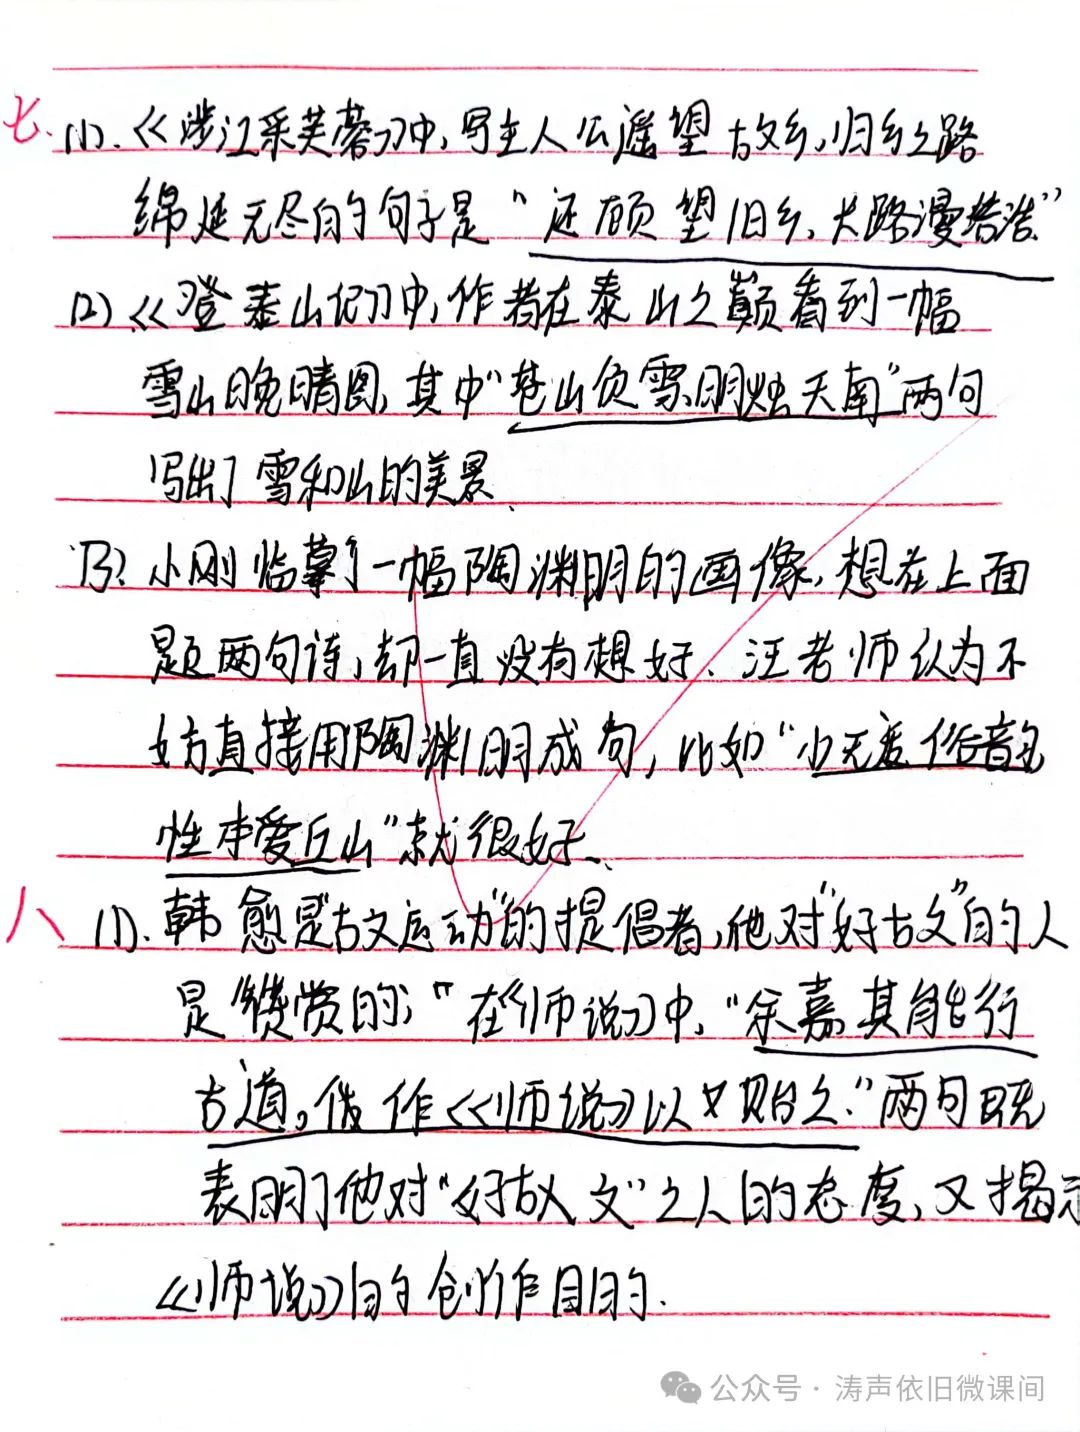 七. (1).《涉江采芙蓉》中,写主人公遥望故乡,归乡之路
绵延无尽的句子是“还顾望旧乡,长路漫浩浩”
(2).《登泰山记》中,作者在泰山之巅看到一幅
雪山晚晴图,其中“苍山负雪,明烛天南”两句
写出了雪和山的美景.
(3) 小刚临摹了一幅陶渊明的画像,想在上面
题两句诗,却一直没有想好.汪老师认为不
妨直接用陶渊明成句,比如“少无适俗韵
性本爱丘山”就很好.
八 (1).韩愈是“古文运动”的提倡者,他对“好古文”的人
是赞赏的;“在《师说》中,“余嘉其能行
古道,作《师说》以贻之.”两句既
表明了他对“好古文”之人的态度,又揭示
《师说》的创作目的.
公众号·涛声依旧微课间